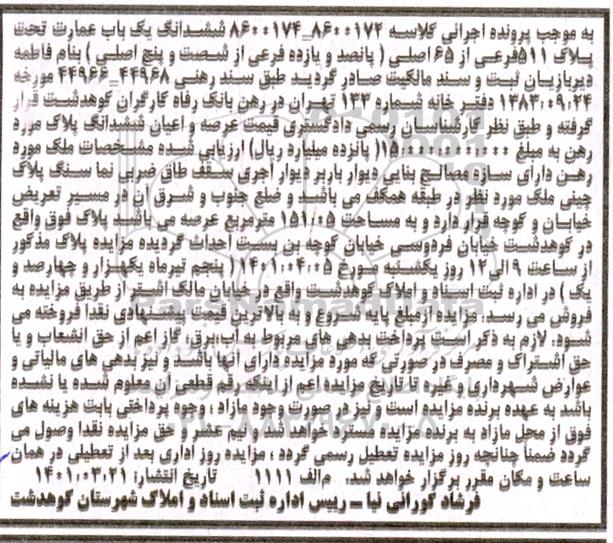 به موجب پرونده اجرائی کلاسه ۸۶۰۰۱۷۲_۸۶۰۰۱۷۴ ششدانگ یک باب عمارت تحت
پلاک ۵۱۱فرعی از ۶۵اصلی ( پانصد و یازده فرعی از شصت و پنج اصلی ) بنام فاطمه
دیربازیان ثبت و سند مالکیت صادر گردید طبق سند رهنی ۴۴۹۶۸_۴۴۹۶۶ مورخه
۱۳۸۳٫۰۹٫۲۴ دفتر خانه شماره ۱۳۳ تهران در رهن بانک رفاه کارگران کوهدشت قرار
گرفته و طبق نظر کارشناسان رسمی دادگستری قیمت عرصه و اعیان ششدانگ پلاک مورد
رهن به مبلغ ۱۵٫۰۰۰٫۰۰۰٫۰۰۰( پانزده میلیارد ریال) ارزیابی شده مشخصات ملک مورد
رهن دارای سازه مصالح بنایی دیوار باربر دیوار آجری سقف طاق ضربی نما سنگ پلاک
چینی ملک مورد نظر در طبقه همکف می باشد و ضلع جنوب و شرق آن در مسیر تعریض
خیابان و کوچه قرار دارد و به مساحت ۱۵۱٫۰۵ مترمربع عرصه می باشد پلاک فوق واقع
در کوهدشت خیابان فردوسی خیابان کوچه بن بست احداث گردیده مزایده پلاک مذکور
از ساعت ۹ الی۱۲ روز یکشنبه مورخ ۱۴۰۱٫۰۴٫۰۵( پنجم تیرماه یکهزار و چهارصد و
یک ) در اداره ثبت اسناد و املاک کوهدشت واقع در خیابان مالک اشتر از طریق مزایده به
فروش می رسد. مزایده ازمبلغ پایه شروع و به بالاترین قیمت پیشنهادی نقدا فروخته می
شود. لازم به ذکر است پرداخت بدهی های مربوط به آب،برق، گاز اعم از حق انشعاب و یا
حق اشتراک و مصرف در صورتی که مورد مزایده دارای آنها باشد و نیز بدهی های مالیاتی و
عوارض شهرداری و غیره تا تاریخ مزایده اعم از اینکه رقم قطعی آن معلوم شده یا نشده
باشد به عهده برنده مزایده است و نیز در صورت وجود مازاد ، وجوه پرداختی بابت هزینه های
فوق از محل مازاد به برنده مزایده مسترد خواهد شد و نیم عشر و حق مزایده نقدا وصول می
گردد ضمناً چنانچه روز مزایده تعطیل رسمی گردد ، مزایده روز اداری بعد از تعطیلی در همان
ساعت و مکان مقرر برگزار خواهد شد. م‌الف ۱۱۱۱ تاریخ انتشار: ۱۴۰۱٫۰۳٫۲۱
فرشاد گورانی نیا ــ رییس اداره ثبت اسناد و املاک شهرستان کوهدشت